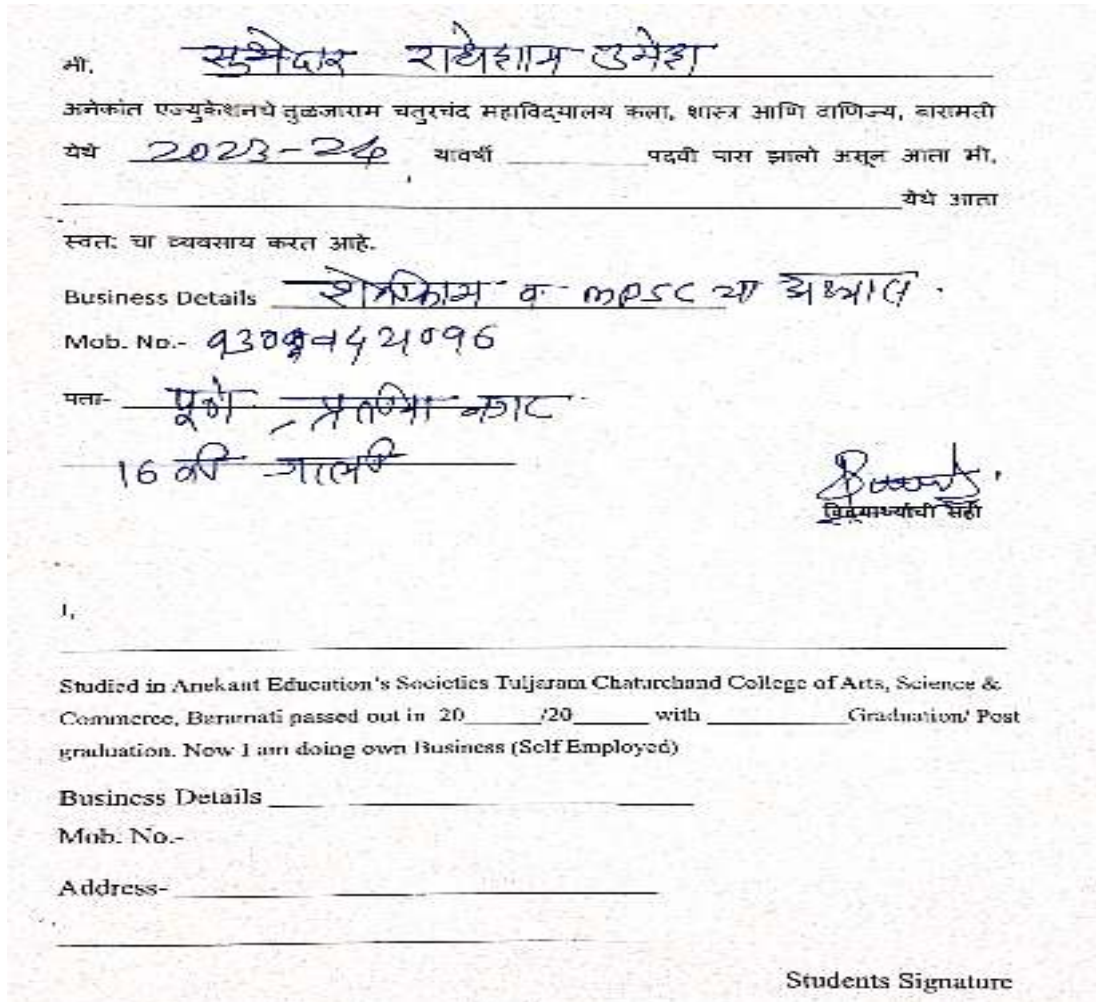 मी, सुभेदार राधेशाम उमेश
अनेकांत एज्युकेशनचे तुळजाराम चतुरचंद महाविद्यालय कला, शास्त्र आणि वाणिज्य, बारामती
येथे 2023-24 यावर्षी पदवी पास झालो असून आता मी,
येथे आता
स्वत: चा व्यवसाय करत आहे.
Business Details व mpsc चा अभ्यास.
Mob. No.-
पत्ता- पूणे,
16 वी
विद्यार्थ्याची सही
I,
Studied in Anekant Education's Societies Tuljaram Chaturchand College of Arts, Science &
Commerce, Baramati passed out in 20 /20 with Graduation/ Post
graduation. Now I am doing own Business (Self Employed)
Business Details
Mob. No.-
Address-
Students Signature